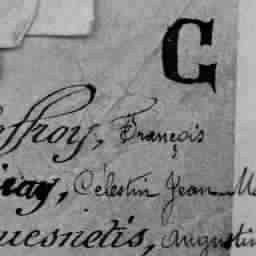 G
offroy, François
iray, Célestin Jean-M
uesnetis, Augustin